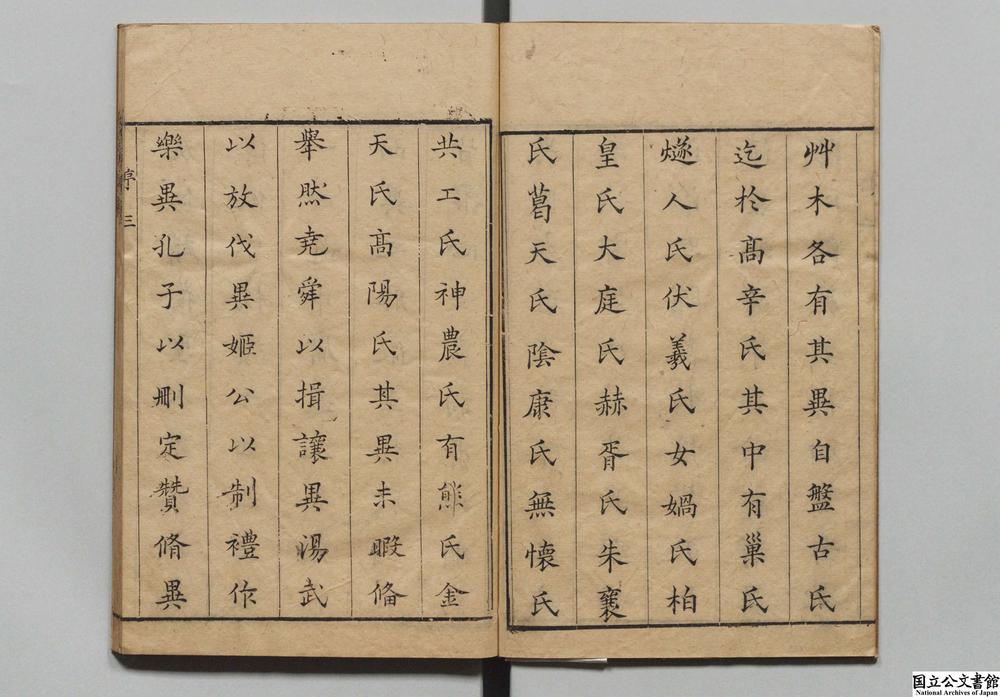 艸木各有其異自盤古氏
迄於髙辛氏其中有巢氏
燧人氏伏羲氏女媧氏柏
皇氏大庭氏赫胥氏朱襄
氏葛天氏陰康氏無懷氏
共工氏神農氏有熊氏金
天氏髙陽氏其異未暇偹
舉然堯舜以揖讓異湯武
以放伐異姬公以制禮作
樂異孔子以刪定贊脩異
序 三
国立公文書館
National Archives of Japan